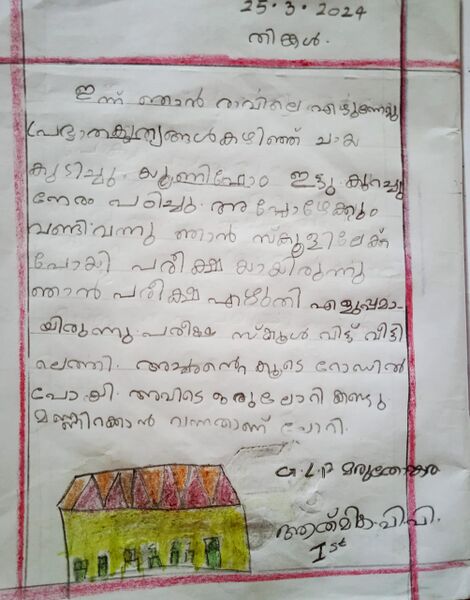 25.3.2024
തിങ്കൾ.
ഇന്ന് ഞാൻ രാവിലെ എഴുന്നേറ്റു
പ്രഭാതകൃത്യങ്ങൾകഴിഞ്ഞ് ചായ
കുടിച്ചു. യൂണിഫോം ഇട്ടു. കുറച്ചു
നേരം പഠിച്ചു. അപ്പോഴേക്കും
വണ്ടിവന്നു ഞാൻ സ്കൂളിലേക്ക്
പോയി പരീക്ഷ യായിരുന്നു
ഞാൻ പരീക്ഷ എഴുതി എളുപ്പമാ
യിരുന്നു. പരീക്ഷ സ്കൂൾ വിട്ട് വീട്ടി
ലെത്തി. അച്ഛൻ്റെ കൂടെ റോഡിൽ
പോയി. അവിടെ ഒരു ലോറി കണ്ടു
മണ്ണിറക്കാൻ വന്നതാണ് ലോറി.
G.L.P
ആത്മിക.വി.പി.
Ist